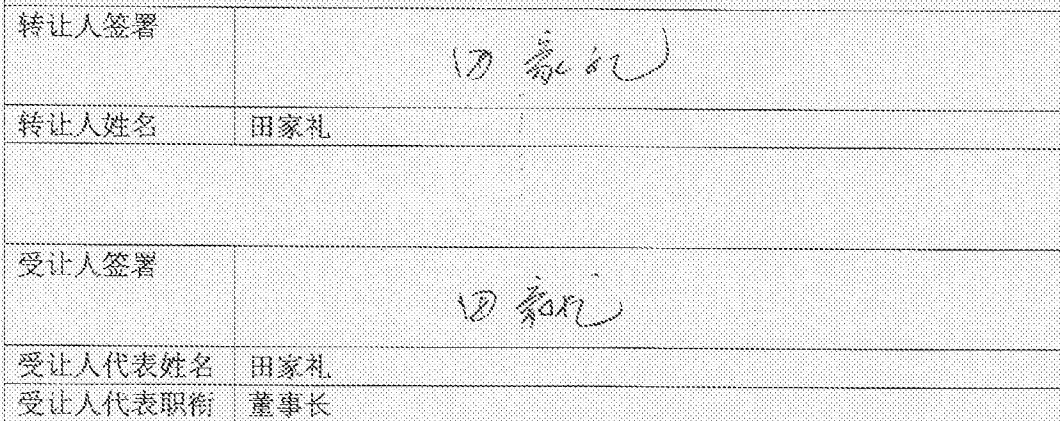 转让人签署 田家礼
转让人姓名 田家礼
受让人签署 田家礼
受让人代表姓名 田家礼
受让人代表职衔 董事长